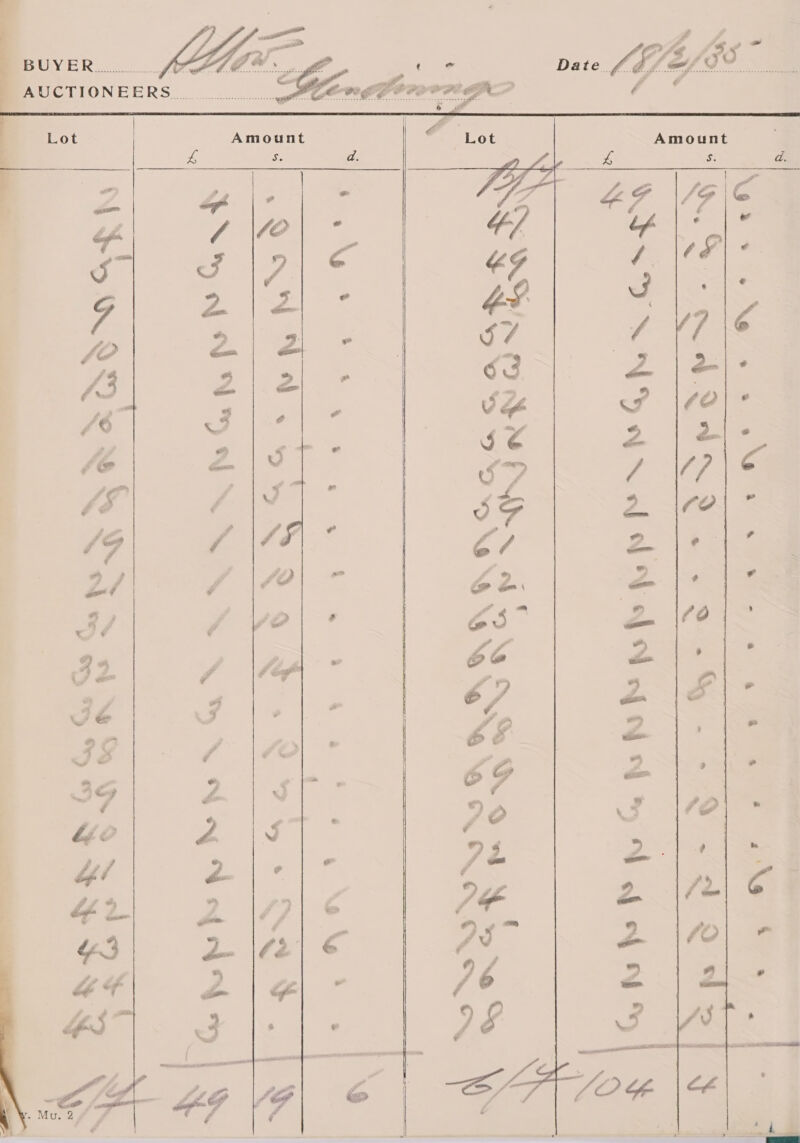 BUYER Date 18/2/35
AUCTIONEERS Glendinings
Lot Amount Lot Amount
£ s. d. £ s. d.
2 4 . - B/F 49 19 6
4 1 10 - 47 4 . -
5 3 7 6 49 1 18 -
9 2 2 - 48 3 . -
10 2 2 - 51 1 17 6
13 2 2 - 53 2 2 -
15 3 . - 54 3 10 -
16 2 5 - 56 2 2 -
18 1 5 - 57 1 17 6
19 1 18 - 59 2 10 -
21 1 10 - 61 2 . -
31 1 10 - 62. 2 . -
32 1 14 - 65 2 10 -
36 3 . - 66 2 . -
38 1 10 - 67 2 8 -
39 2 5 - 68 2 . -
40 2 5 - 69 2 . -
41 2 . - 70 3 10 -
42 2 17 6 72 2 . -
43 2 12 6 74 2 12 6
44 2 4 - 75 2 10 -
45 3 . - 76 2 2 -
78 3 15 -
C/F 49 19 6 C/F 104 4 .
Mu. 2